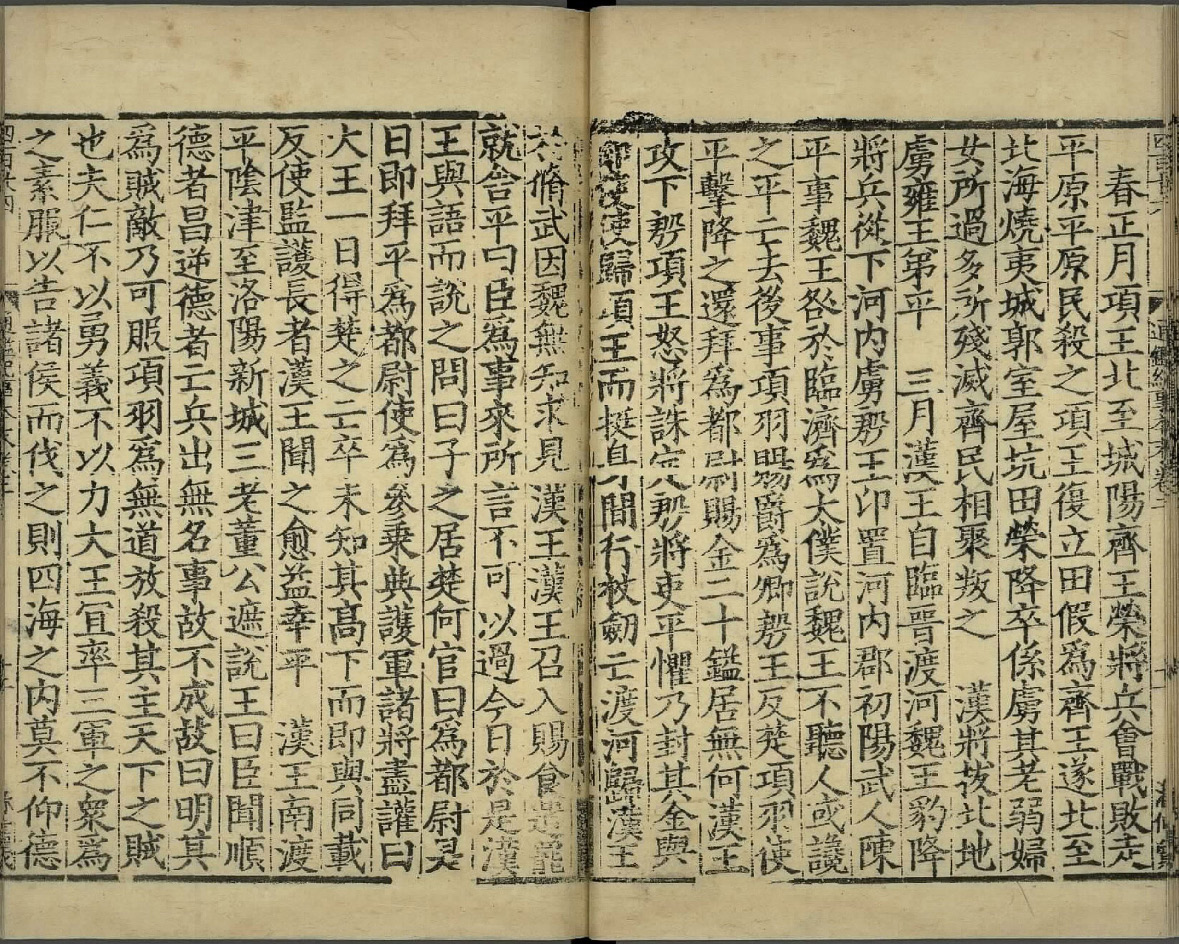 春正月項王北至城陽齊王榮將兵會戰敗走
平原平原民殺之項王復立田假爲齊王遂北至
北海燒夷城郭室屋坑田榮降卒係虜其老弱婦
女所過多所殘滅齊民相聚叛之　漢將拔北地
虜雍王弟平　三月漢王自臨晉渡河魏王豹降
將兵從下河內虜殷王卬置河內郡初陽武人陳
平事魏王咎於臨濟爲太僕說魏王不聽人或讒
之平亡去後事項羽賜爵爲卿殷王反楚項羽使
平擊降之還拜爲都尉賜金二十鎰居無何漢王
攻下殷項王怒將誅定殷將吏平懼乃封其金與
印使使歸項王而挺身間行杖劒亡渡河歸漢王
於脩武因魏無知求見　漢王漢王召入賜食遣罷
就舍平曰臣爲事來所言不可以過今日於是漢
王與語而說之問曰子之居楚何官曰爲都尉是
日即拜平爲都尉使爲參乗典護軍諸將盡讙曰
大王一日得楚之亡卒未知其高下而即與同載
反使監護長者漢王聞之愈益幸平　漢王南渡
平陰津至洛陽新城三老董公遮說王曰臣聞順
德者昌逆德者亡兵出無名事故不成故曰明其
爲賊敵乃可服項羽爲無道放殺其主天下之賊
也夫仁不以勇義不以力大王冝率三軍之衆爲
之素服以告諸侯而伐之則四海之內莫不仰德